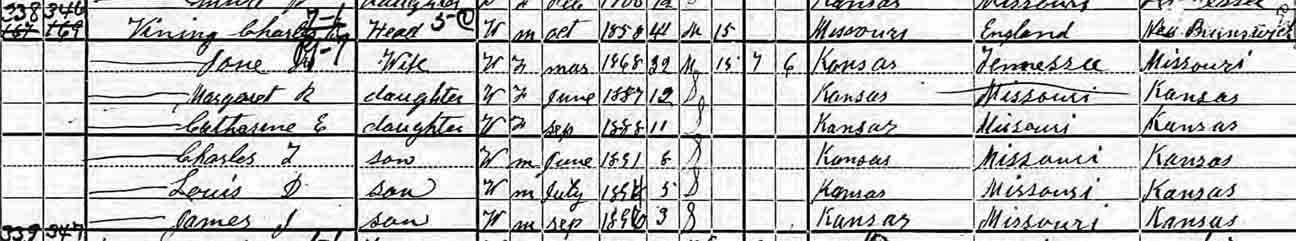 338 346 daughter Kansas Missouri
167 169 Vining Charles Head W m oct 1858 41 M 15 Missouri England New Brunswick
Jane Wife W F mar 1868 32 M 15 7 6 Kansas Tennessee Missouri
Margaret R daughter W F June 1887 12 S Kansas Missouri Kansas
Catharine E daughter W F sep 1888 11 S Kansas Missouri Kansas
Charles T son W m June 1891 8 S Kansas Missouri Kansas
Louis D son W m July 1894 5 S Kansas Missouri Kansas
James J son W m sep 1896 3 S Kansas Missouri Kansas
339 347